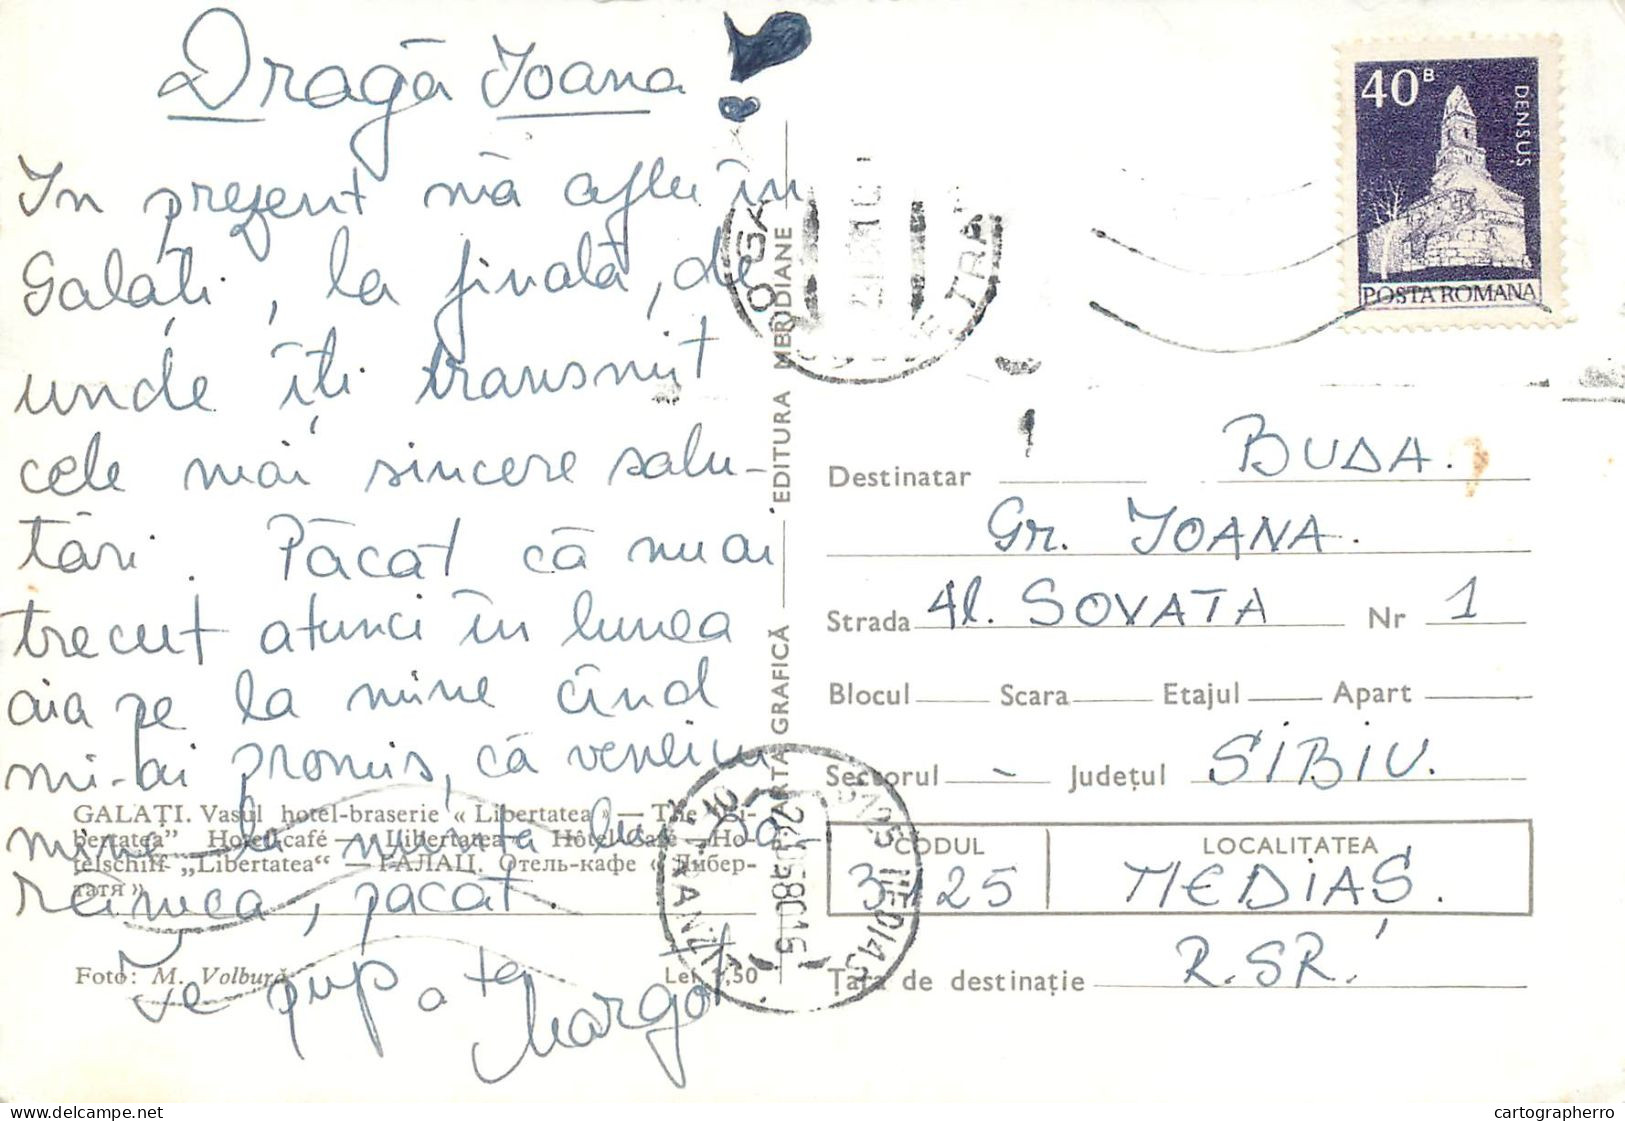 Dragă Ioana !
In prezent mă aflu în
Galați, la finală, de
unde îți transmit
cele mai sincere salu-
tări. Păcat că nu ai
trecut atunci în lunea
aia pe la mine când
mi-ai promis, că
mine la nunta lui
păcat.
Te pup
Margot
GALAȚI. Vasul hotel-braserie « Libertatea » — The „Li-
bertatea” Hotel-café — « Libertatea » Hôtel-Café — Ho-
telschiff „Libertatea“ — ГАЛАЦ. Отель-кафе « Либер-
татя »
Foto: M. Volbură
Lei 1,50
EDITURA MERIDIANE
CARTA GRAFICĂ
40B
DENSUS
POSTA ROMANA
Destinatar BUDA.
Gr. IOANA.
Strada Al. SOVATA Nr 1
Blocul Scara Etajul Apart
Sectorul - Județul SIBIU.
CODUL LOCALITATEA
3125 MEDIAȘ.
Țara de destinație R.SR.
3125 MEDIAS
cartographerro